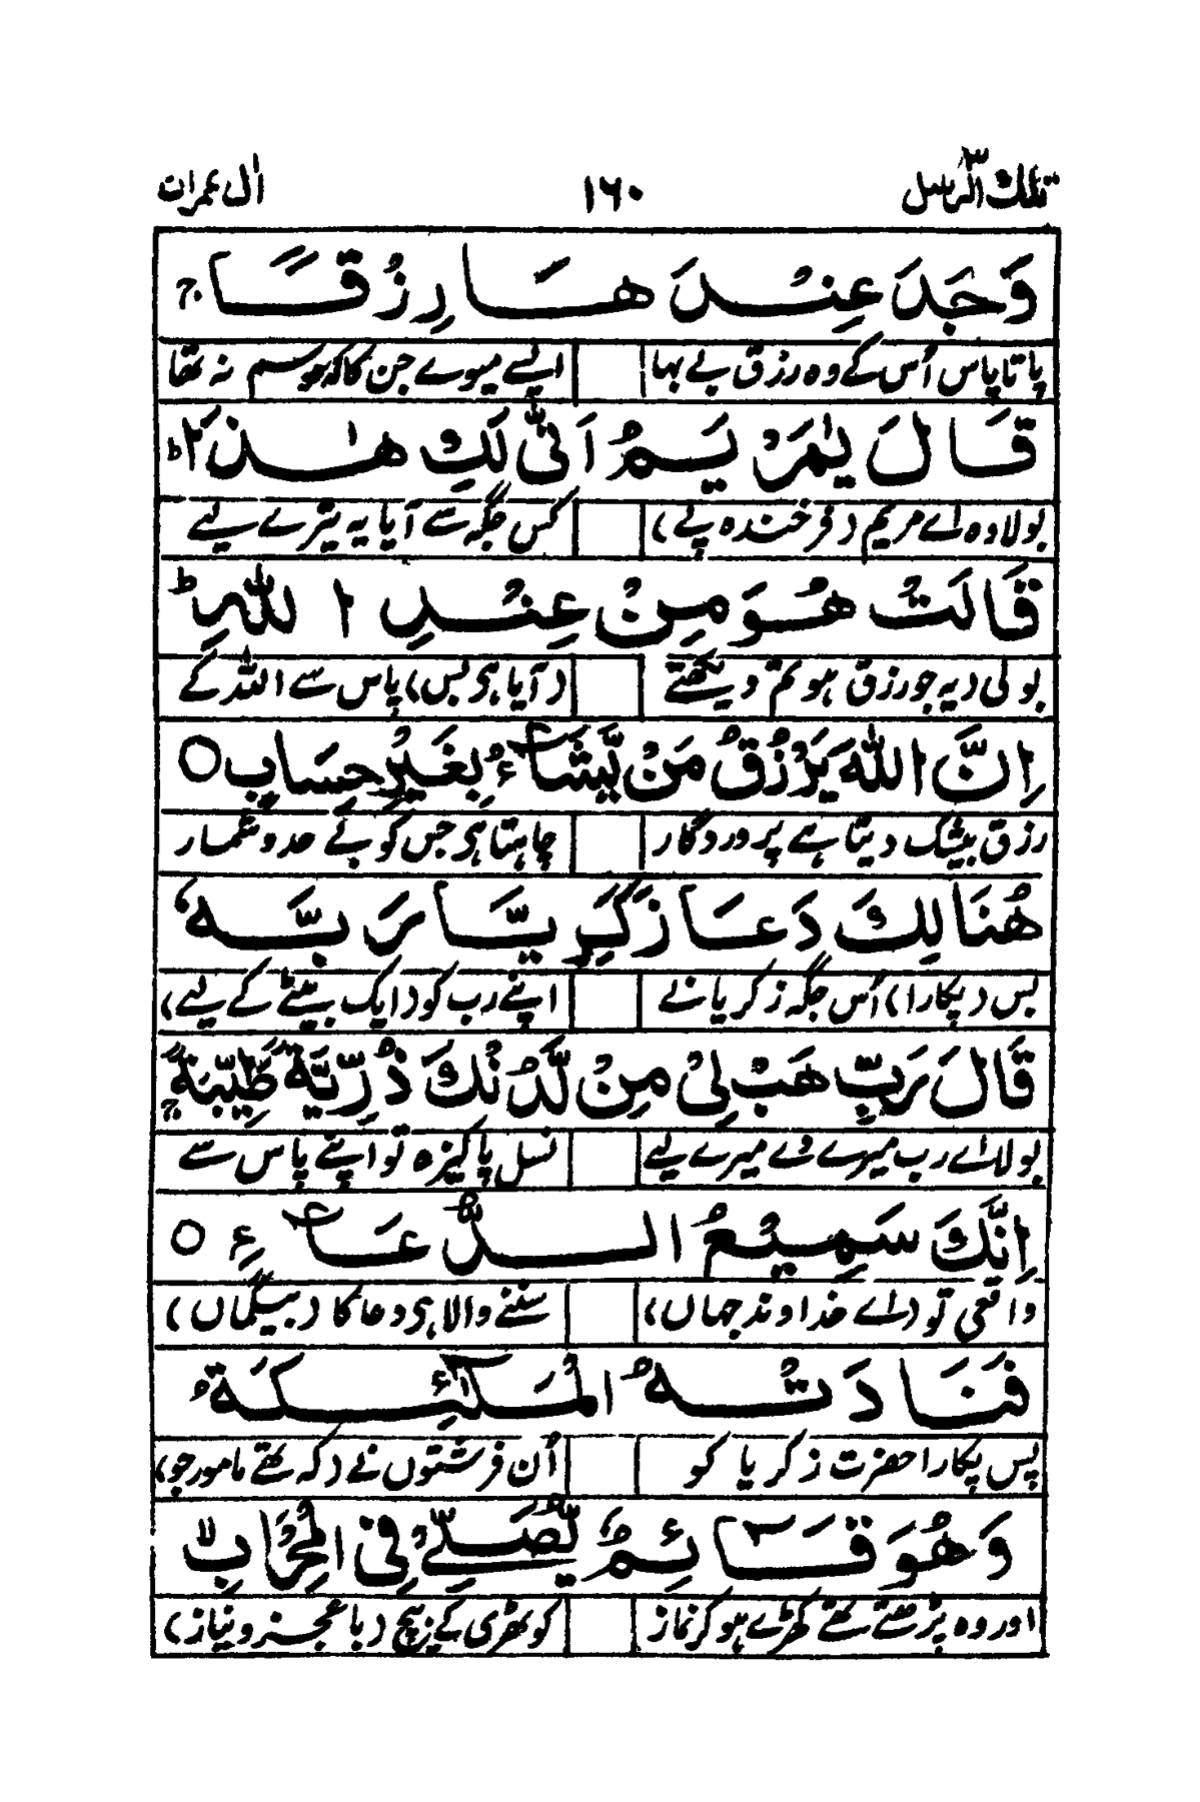 تلك الرسل ٣ ١٦٠ اٰل عمران
وَجَدَ عِنْدَهَا رِزْقًا ج
پاتا پاس اُس کے وہ رزق بے بہا ایسے میوے جن کا کہ موسم نہ تھا
قَالَ يٰمَرْيَمُ اَنّٰى لَكِ هٰذَا ط
بولا وہ اے مریم (فرخندہ پے) کس جگہ سے آیا یہ تیرے لیے
قَالَتْ هُوَ مِنْ عِنْدِ اللّٰهِ ط
بولی (یہ جو رزق ہو تم دیکھتے (آیا ہی بس) پاس سے اللہ کے
اِنَّ اللّٰهَ يَرْزُقُ مَنْ يَّشَآءُ بِغَيْرِ حِسَابٍ ○
رزق بیشک دیتا ہے پروردگار چاہتا ہی جس کو بے حد و شمار
هُنَالِكَ دَعَا زَكَرِيَّا رَبَّهٗ
بس (پکارا) اُس جگہ زکریا نے اپنے رب کو (ایک بیٹے کے لیے)
قَالَ رَبِّ هَبْ لِيْ مِنْ لَّدُنْكَ ذُرِّيَّةً طَيِّبَةً ج
بولا اے رب میرے دے میرے لیے نسل پاکیزہ تو اپنے پاس سے
اِنَّكَ سَمِيْعُ الدُّعَآءِ ○
واقعی تو (اے خداوند جہاں) سننے والا ہی دعا کا (بیگماں)
فَنَادَتْهُ الْمَلٰٓئِكَةُ
پس پکارا حضرت زکریا کو اُن فرشتوں نے (کہ تھے مامور جو)
وَهُوَ قَآئِمٌ يُّصَلِّيْ فِي الْمِحْرَابِ لا
اور وہ پڑھتے تھے کھڑے ہو کر نماز کوٹھری کے بیچ (با عجز و نیاز)